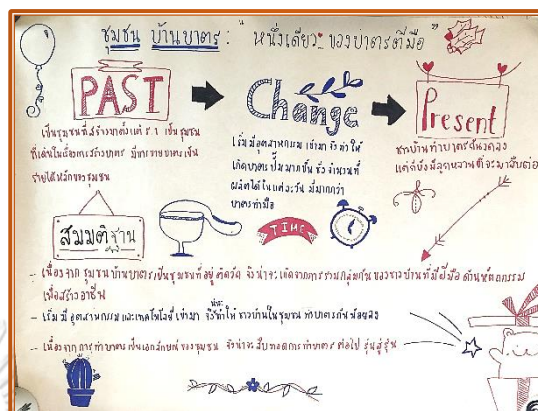 ชุมชน บ้านบาตร : "หนึ่งเดียว ของบาตรตีมือ"
PAST
Change
Present
เป็นชุมชนที่สร้างมาตั้งแต่ ร.1 เป็นชุมชน
ที่เด่นในเรื่องการสร้างบาตร มีการขายบาตรเป็น
รายได้หลักของชุมชน
เริ่มมีอุตสาหกรรม เข้ามา จึงทำให้
เกิดบาตรปั๊มมากขึ้น ซึ่งจำนวนที่
ผลิตได้ในแต่ละวัน มีมากกว่า
บาตรทำมือ
ชาวบ้านทำบาตรกันน้อยลง
แต่ก็ยังมีลูกหลานที่จะมาสืบต่อ
สมมติฐาน
TIME
- เนื่องจาก ชุมชนบ้านบาตรเป็นชุมชนที่อยู่ติดวัด จึงน่าจะเกิดจากการรวมกลุ่มกันของชาวบ้านที่มีฝีมือ ด้านหัตถกรรม
เพื่อสร้างอาชีพ
- เริ่มมีอุตสาหกรรม และเทคโนโลยีเข้ามา จึงน่าจะทำให้ชาวบ้านในชุมชน ทำบาตรกันน้อยลง
- เนื่องจาก การทำบาตรเป็นเอกลักษณ์ของชุมชน จึงน่าจะสืบทอดการทำบาตร ต่อไป รุ่นสู่รุ่น